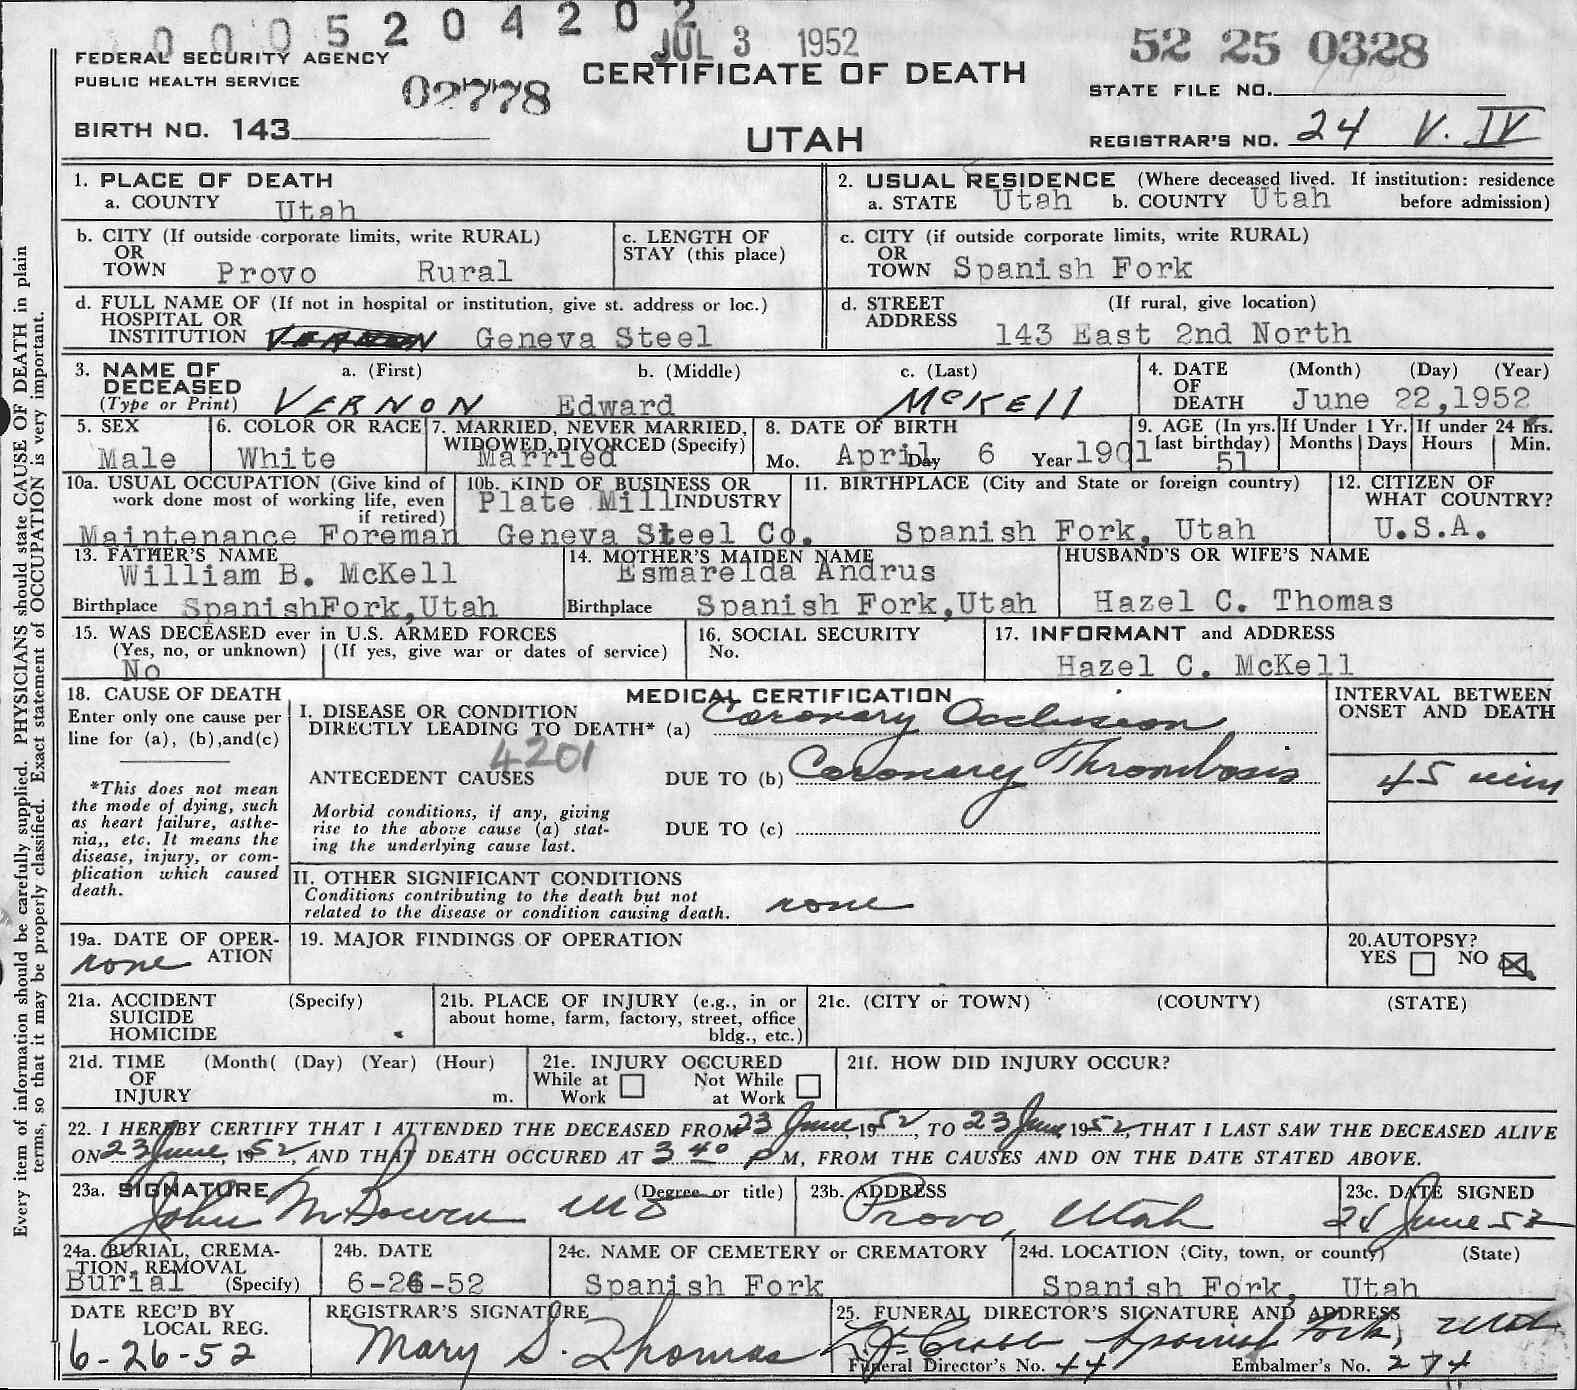 000520420 2
JUL 3 1952
52 25 0328
FEDERAL SECURITY AGENCY
PUBLIC HEALTH SERVICE
02778
CERTIFICATE OF DEATH
STATE FILE NO.
BIRTH NO. 143
UTAH
REGISTRAR'S NO. 24 V. IV
1. PLACE OF DEATH
a. COUNTY Utah
2. USUAL RESIDENCE (Where deceased lived. If institution: residence before admission)
a. STATE Utah b. COUNTY Utah
b. CITY (If outside corporate limits, write RURAL)
OR
TOWN Provo Rural
c. LENGTH OF
STAY (this place)
c. CITY (if outside corporate limits, write RURAL)
OR
TOWN Spanish Fork
d. FULL NAME OF (If not in hospital or institution, give st. address or loc.)
HOSPITAL OR
INSTITUTION VERNON Geneva Steel
d. STREET (If rural, give location)
ADDRESS
143 East 2nd North
3. NAME OF
DECEASED
(Type or Print)
a. (First) b. (Middle) c. (Last)
VERNON Edward McKEll
4. DATE (Month) (Day) (Year)
OF
DEATH June 22,1952
5. SEX
Male
6. COLOR OR RACE
White
7. MARRIED, NEVER MARRIED,
WIDOWED, DIVORCED (Specify)
Married
8. DATE OF BIRTH
Mo. April Day 6 Year 1901
9. AGE (In yrs. last birthday)
51
If Under 1 Yr.
Months Days
If under 24 Hrs.
Hours Min.
10a. USUAL OCCUPATION (Give kind of
work done most of working life, even
if retired)
Maintenance Foreman
10b. KIND OF BUSINESS OR
INDUSTRY
Plate Mill
Geneva Steel Co.
11. BIRTHPLACE (City and State or foreign country)
Spanish Fork, Utah
12. CITIZEN OF
WHAT COUNTRY?
U.S.A.
13. FATHER'S NAME
William B. McKell
Birthplace SpanishFork,Utah
14. MOTHER'S MAIDEN NAME
Esmarelda Andrus
Birthplace Spanish Fork,Utah
HUSBAND'S OR WIFE'S NAME
Hazel C. Thomas
15. WAS DECEASED ever in U.S. ARMED FORCES
(Yes, no, or unknown) (If yes, give war or dates of service)
No
16. SOCIAL SECURITY
No.
17. INFORMANT and ADDRESS
Hazel C. McKell
18. CAUSE OF DEATH
Enter only one cause per
line for (a), (b),and(c)
*This does not mean
the mode of dying, such
as heart failure, asthe-
nia,, etc. It means the
disease, injury, or com-
plication which caused
death.
MEDICAL CERTIFICATION
I. DISEASE OR CONDITION
DIRECTLY LEADING TO DEATH* (a) Coronary Occlusion
4201
ANTECEDENT CAUSES DUE TO (b) Coronary Thrombosis
Morbid conditions, if any, giving
rise to the above cause (a) stat-
ing the underlying cause last.
DUE TO (c)
INTERVAL BETWEEN
ONSET AND DEATH
45 min
II. OTHER SIGNIFICANT CONDITIONS
Conditions contributing to the death but not
related to the disease or condition causing death. none
19a. DATE OF OPER-
ATION
none
19. MAJOR FINDINGS OF OPERATION
20.AUTOPSY?
YES NO
21a. ACCIDENT (Specify)
SUICIDE
HOMICIDE
21b. PLACE OF INJURY (e.g., in or
about home, farm, factory, street, office
bldg., etc.)
21c. (CITY or TOWN) (COUNTY) (STATE)
21d. TIME (Month( (Day) (Year) (Hour)
OF
INJURY m.
21e. INJURY OCCURED
While at Work Not While at Work
21f. HOW DID INJURY OCCUR?
22. I HEREBY CERTIFY THAT I ATTENDED THE DECEASED FROM 23 June, 1952, TO 23 June, 1952, THAT I LAST SAW THE DECEASED ALIVE
ON 23 June, 1952, AND THAT DEATH OCCURED AT 3 40 P M, FROM THE CAUSES AND ON THE DATE STATED ABOVE.
23a. SIGNATURE (Degree or title)
John M Bowen MD
23b. ADDRESS
Provo, Utah
23c. DATE SIGNED
24 June 52
24a. BURIAL, CREMA-
TION, REMOVAL
(Specify)
Burial
24b. DATE
6-26-52
24c. NAME OF CEMETERY or CREMATORY
Spanish Fork
24d. LOCATION (City, town, or county) (State)
Spanish Fork, Utah
DATE REC'D BY
LOCAL REG.
6-26-52
REGISTRAR'S SIGNATURE
Mary S. Thomas
25. FUNERAL DIRECTOR'S SIGNATURE AND ADDRESS
Spanish Fork, Utah
Funeral Director's No. 44 Embalmer's No. 274
Every item of information should be carefully supplied. PHYSICIANS should state CAUSE OF DEATH in plain
terms, so that it may be properly classified. Exact statement of OCCUPATION is very important.